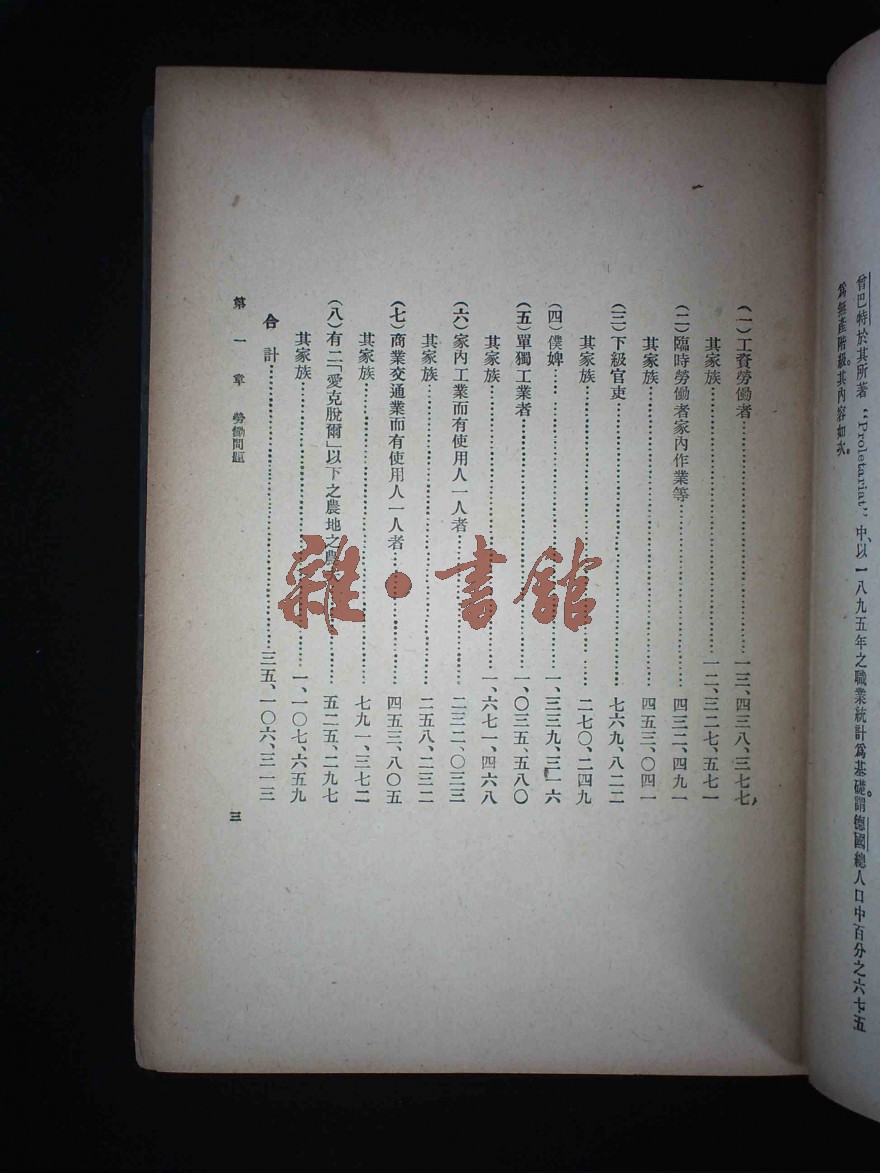 曾巴特於其所著“Proletariat”中、以一八九五年之職業統計爲基礎。謂德國總人口中百分之六七五
爲無產階級。其內容如次。
(一)工資勞働者……一三、四三八、三七七
其家族……一二、三二七、五七一
(二)臨時勞働者家內作業等……四三二、四九一
其家族……四五三、〇四一
(三)下級官吏……七六九、八二二
其家族……二七〇、二四九
(四)僕婢……一、三三九、三一六
(五)單獨工業者……一、〇三五、五八〇
其家族……一、六七一、四六八
(六)家內工業而有使用人一人者……二三二、〇三三
其家族……二五八、二三二
(七)商業交通業而有使用人一人者……四五三、八〇五
其家族……七九一、三七二
(八)有二「愛克脫爾」以下之農地之農夫……五二五、二九七
其家族……一、一〇七、六五九
合計……三五、一〇六、三一三
第一章 勞働問題
三
雜·書館